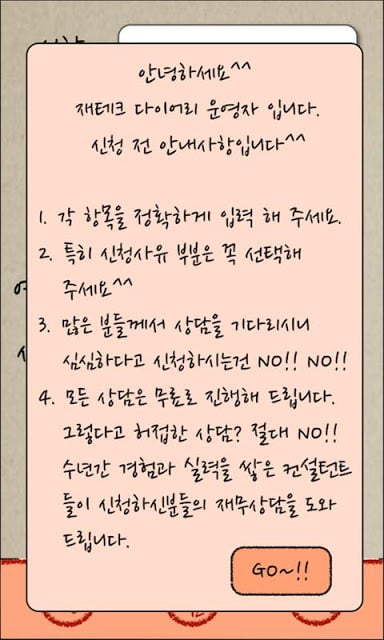 안녕하세요^^
재테크 다이어리 운영자 입니다.
신청 전 안내사항입니다^^
1. 각 항목을 정확하게 입력 해 주세요.
2. 특히 신청사유 부분은 꼭 선택해
주세요^^
3. 많은 분들께서 상담을 기다리시니
심심하다고 신청하시는건 NO!! NO!!
4. 모든 상담은 무료로 진행해 드립니다.
그렇다고 허접한 상담? 절대 NO!!
수년간 경험과 실력을 쌓은 컨설턴트
들이 신청하신분들의 재무상담을 도와
드립니다.
GO~!!